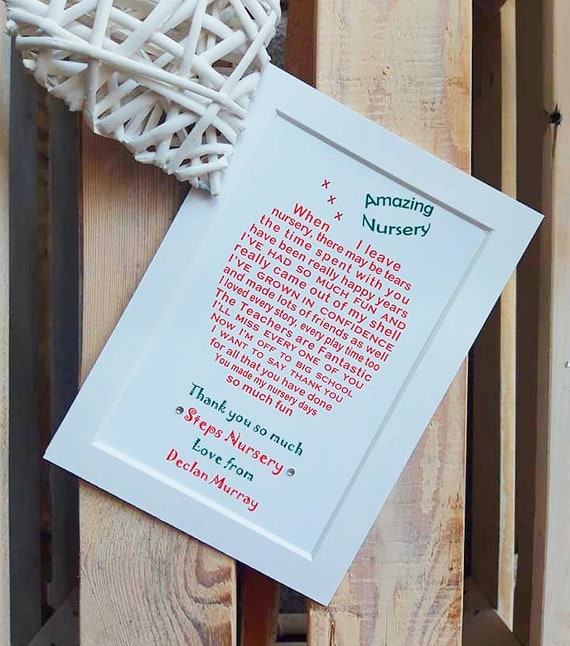 x
x
x
Amazing
Nursery
When I leave
nursery, there may be tears
the time spent with you
have been really happy years
I'VE HAD SO MUCH FUN AND
really came out of my shell
I'VE GROWN IN CONFIDENCE
and made lots of friends as well
I loved every story, every play time too
The Teachers are Fantastic
I'LL MISS EVERY ONE OF YOU
NOW I'M OFF TO BIG SCHOOL
I WANT TO SAY THANK YOU
for all that you have done
You made my nursery days
so much fun
Thank you so much
Steps Nursery
Love from
Declan Murray